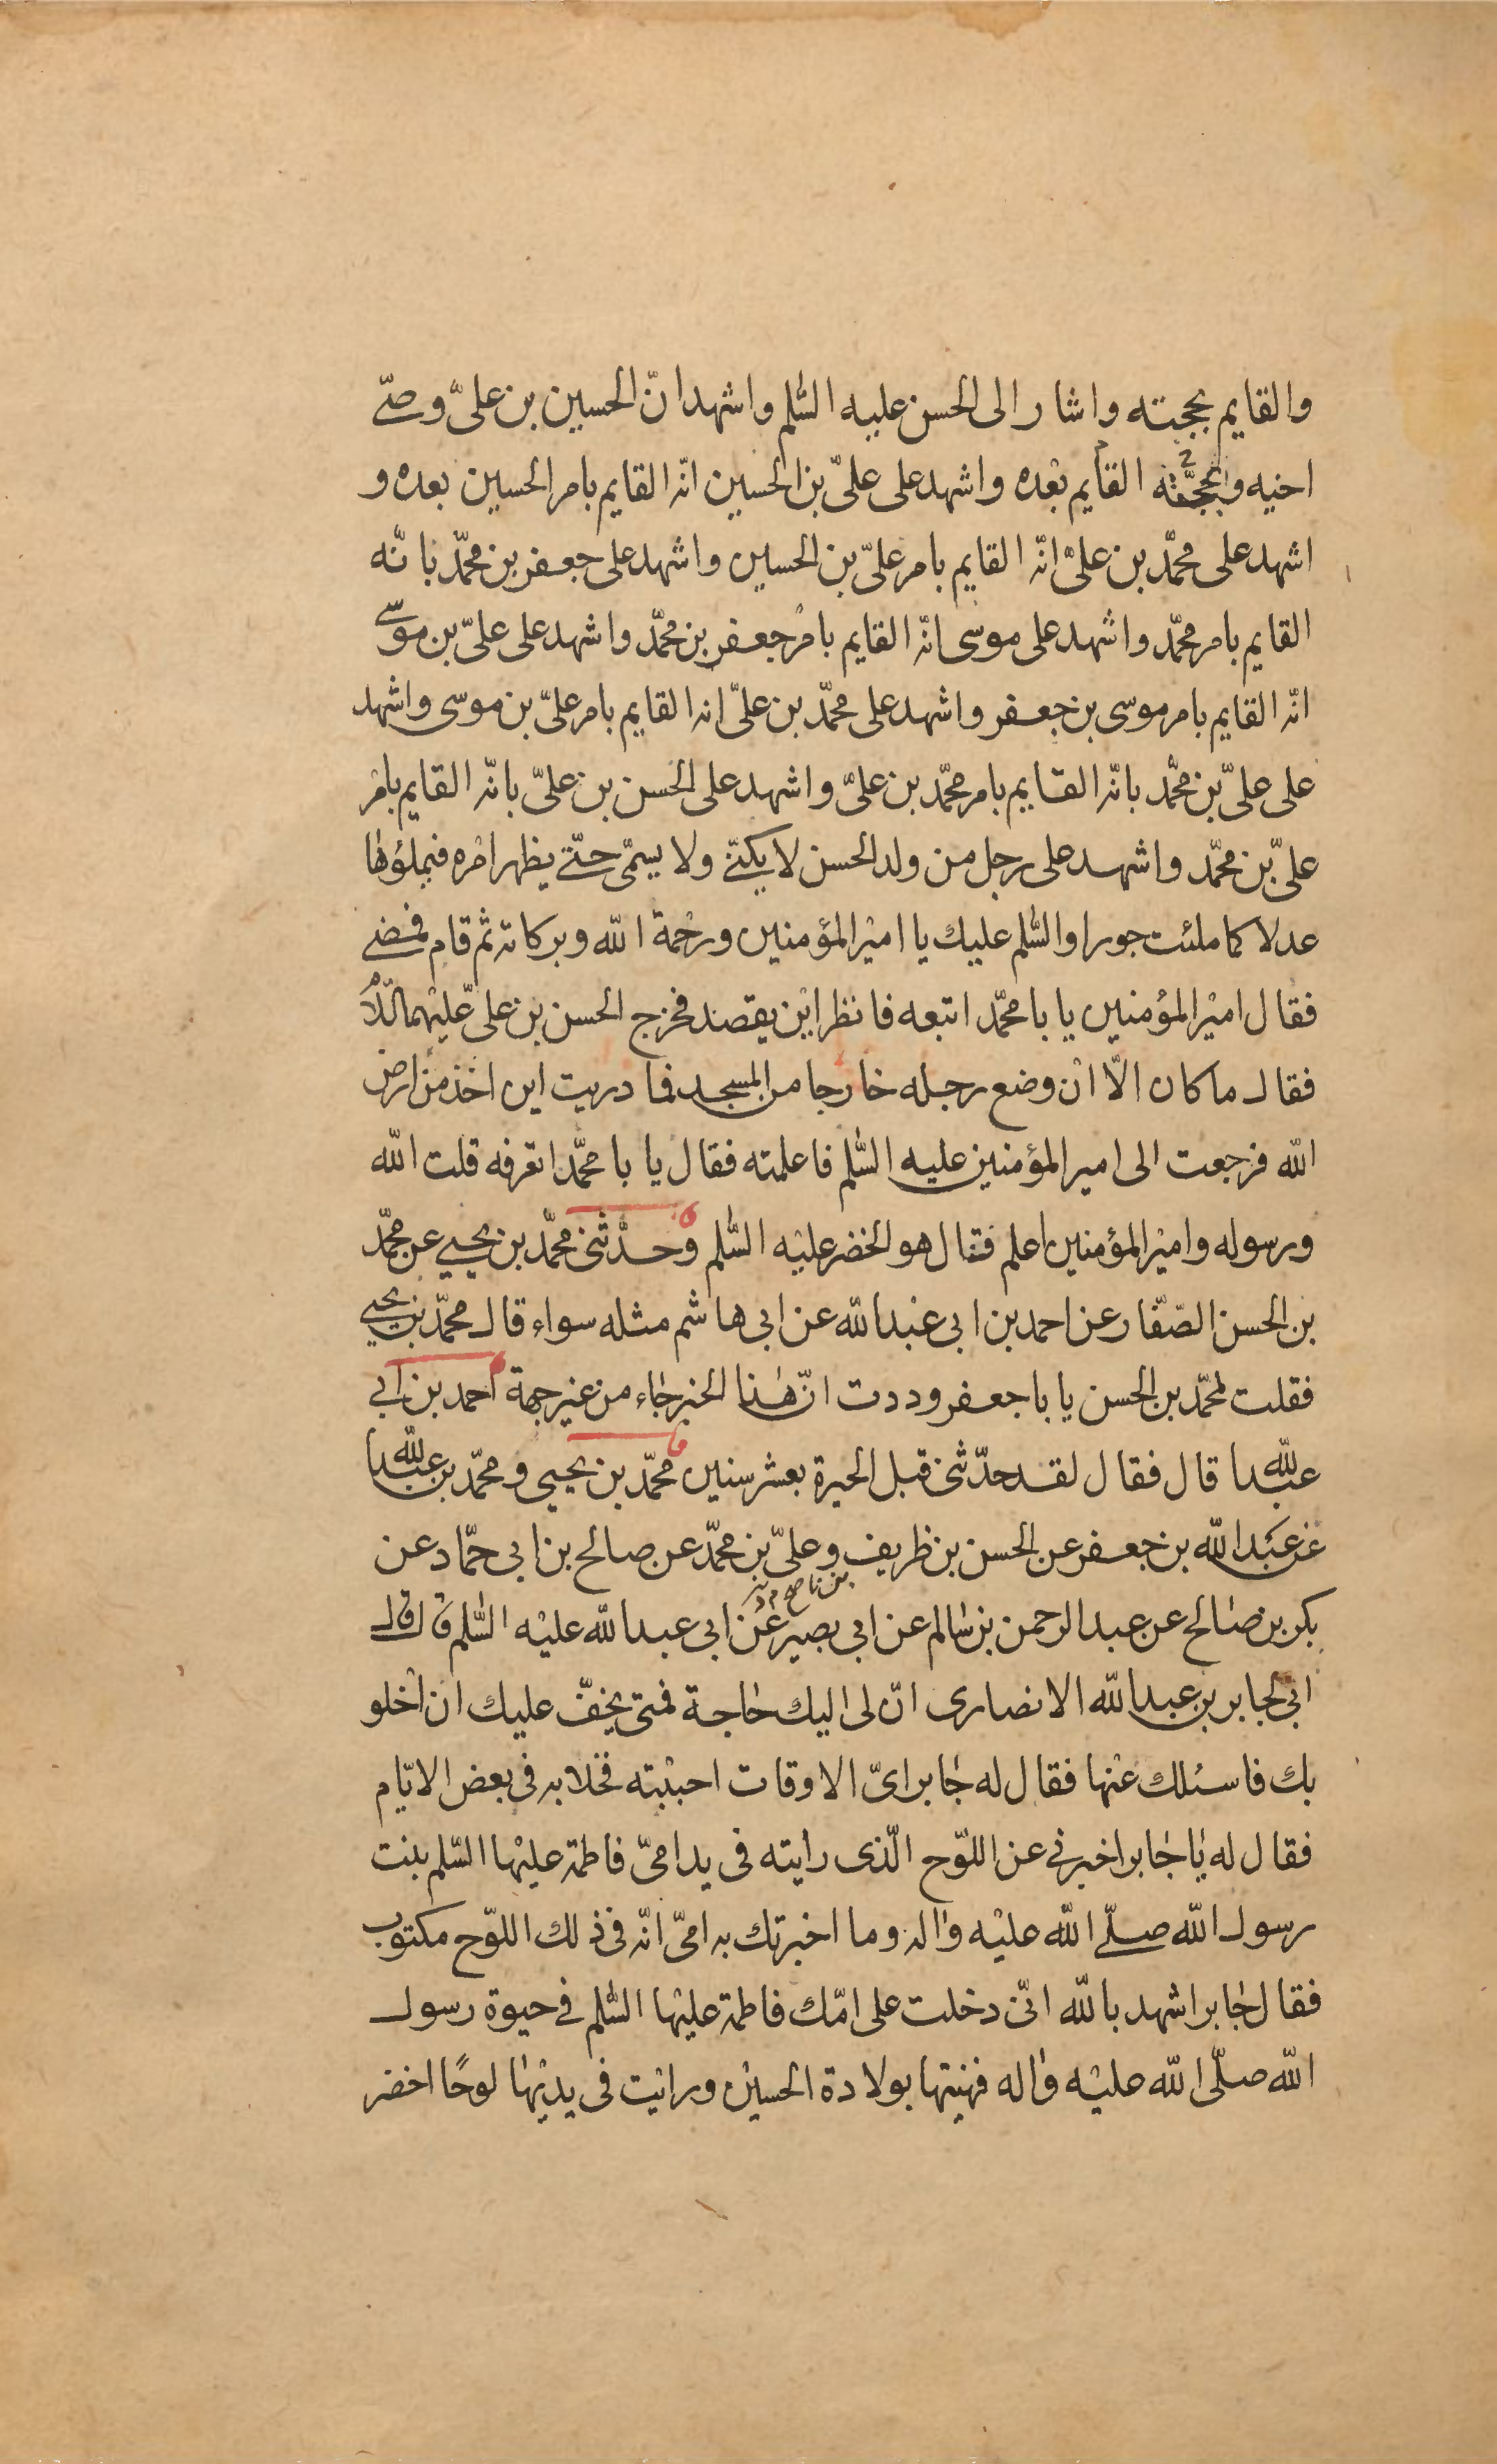 والقايم بحجته واشار الى الحسن عليه السّلم واشهد انّ الحسين بن علىّ وصىّ
اخيه والقايم بحجّته بعده واشهد على علىّ بن الحسين انّه القايم بامر الحسين بعده و
اشهد على محمّد بن علىّ انّه القايم بامر علىّ بن الحسين واشهد على جعفر بن محمّد بانّه
القايم بامر محمّد واشهد على موسى انّه القايم بامر جعفر بن محمّد واشهد على علىّ بن موسى
انّه القايم بامر موسى بن جعفر واشهد على محمّد بن علىّ انه القايم بامر علىّ بن موسى واشهد
على علىّ بن محمّد بانّه القايم بامر محمّد بن علىّ واشهد على الحسن بن علىّ بانّه القايم بامر
علىّ بن محمّد واشهد على رجل من ولد الحسن لا يكنّى ولا يسمّى حتّى يظهر امره فيملؤها
عدلا كما ملئت جورا والسّلم عليك يا امير المؤمنين ورحمة الله وبركاته ثم قام فمضى
فقال امير المؤمنين يا با محمّد اتبعه فانظر اين يقصد فخرج الحسن بن علىّ عليهما السّلام
فقال ما كان الّا ان وضع رجله خارجا من المسجد فما دريت اين اخذ من ارض
الله فرجعت الى امير المؤمنين عليه السّلم فاعلمته فقال يا با محمّد اتعرفه قلت الله
ورسوله وامير المؤمنين اعلم فقال هو الخضر عليه السّلم وحدّثنى محمّد بن يحيى عن محمّد
بن الحسن الصّفّار عن احمد بن ابى عبد الله عن ابى هاشم مثله سواء قال محمّد بن يحيى
فقلت لمحمّد بن الحسن يا با جعفر وددت انّ هذا الخبر جاء من غير جهة احمد بن ابى
عبد الله قال فقال لقد حدّثنى قبل الحيرة بعشر سنين محمّد بن يحيى ومحمّد بن عبد الله
عن عبد الله بن جعفر عن الحسن بن ظريف وعلىّ بن محمّد عن صالح بن ابى حمّاد عن
بكر بن صالح عن عبد الرحمن بن سالم عن ابى بصير عن ابى عبد الله عليه السّلم قال قال
ابى لجابر بن عبد الله الانصارى انّ لى اليك حاجة فمتى يخفّ عليك ان اخلو
بك فاسئلك عنها فقال له جابر اىّ الاوقات احببته فخلا به فى بعض الايّام
فقال له يا جابر اخبرنى عن اللوّح الّذى رايته فى يد امّى فاطمة عليها السّلم بنت
رسول الله صلّى الله عليه واله وما اخبرتك به امّى انّه فى ذلك اللوّح مكتوب
فقال جابر اشهد بالله انّى دخلت على امّك فاطمة عليها السّلم فى حيوة رسول
الله صلّى الله عليه واله فهنيتها بولادة الحسين ورايت فى يديها لوحًا اخضر